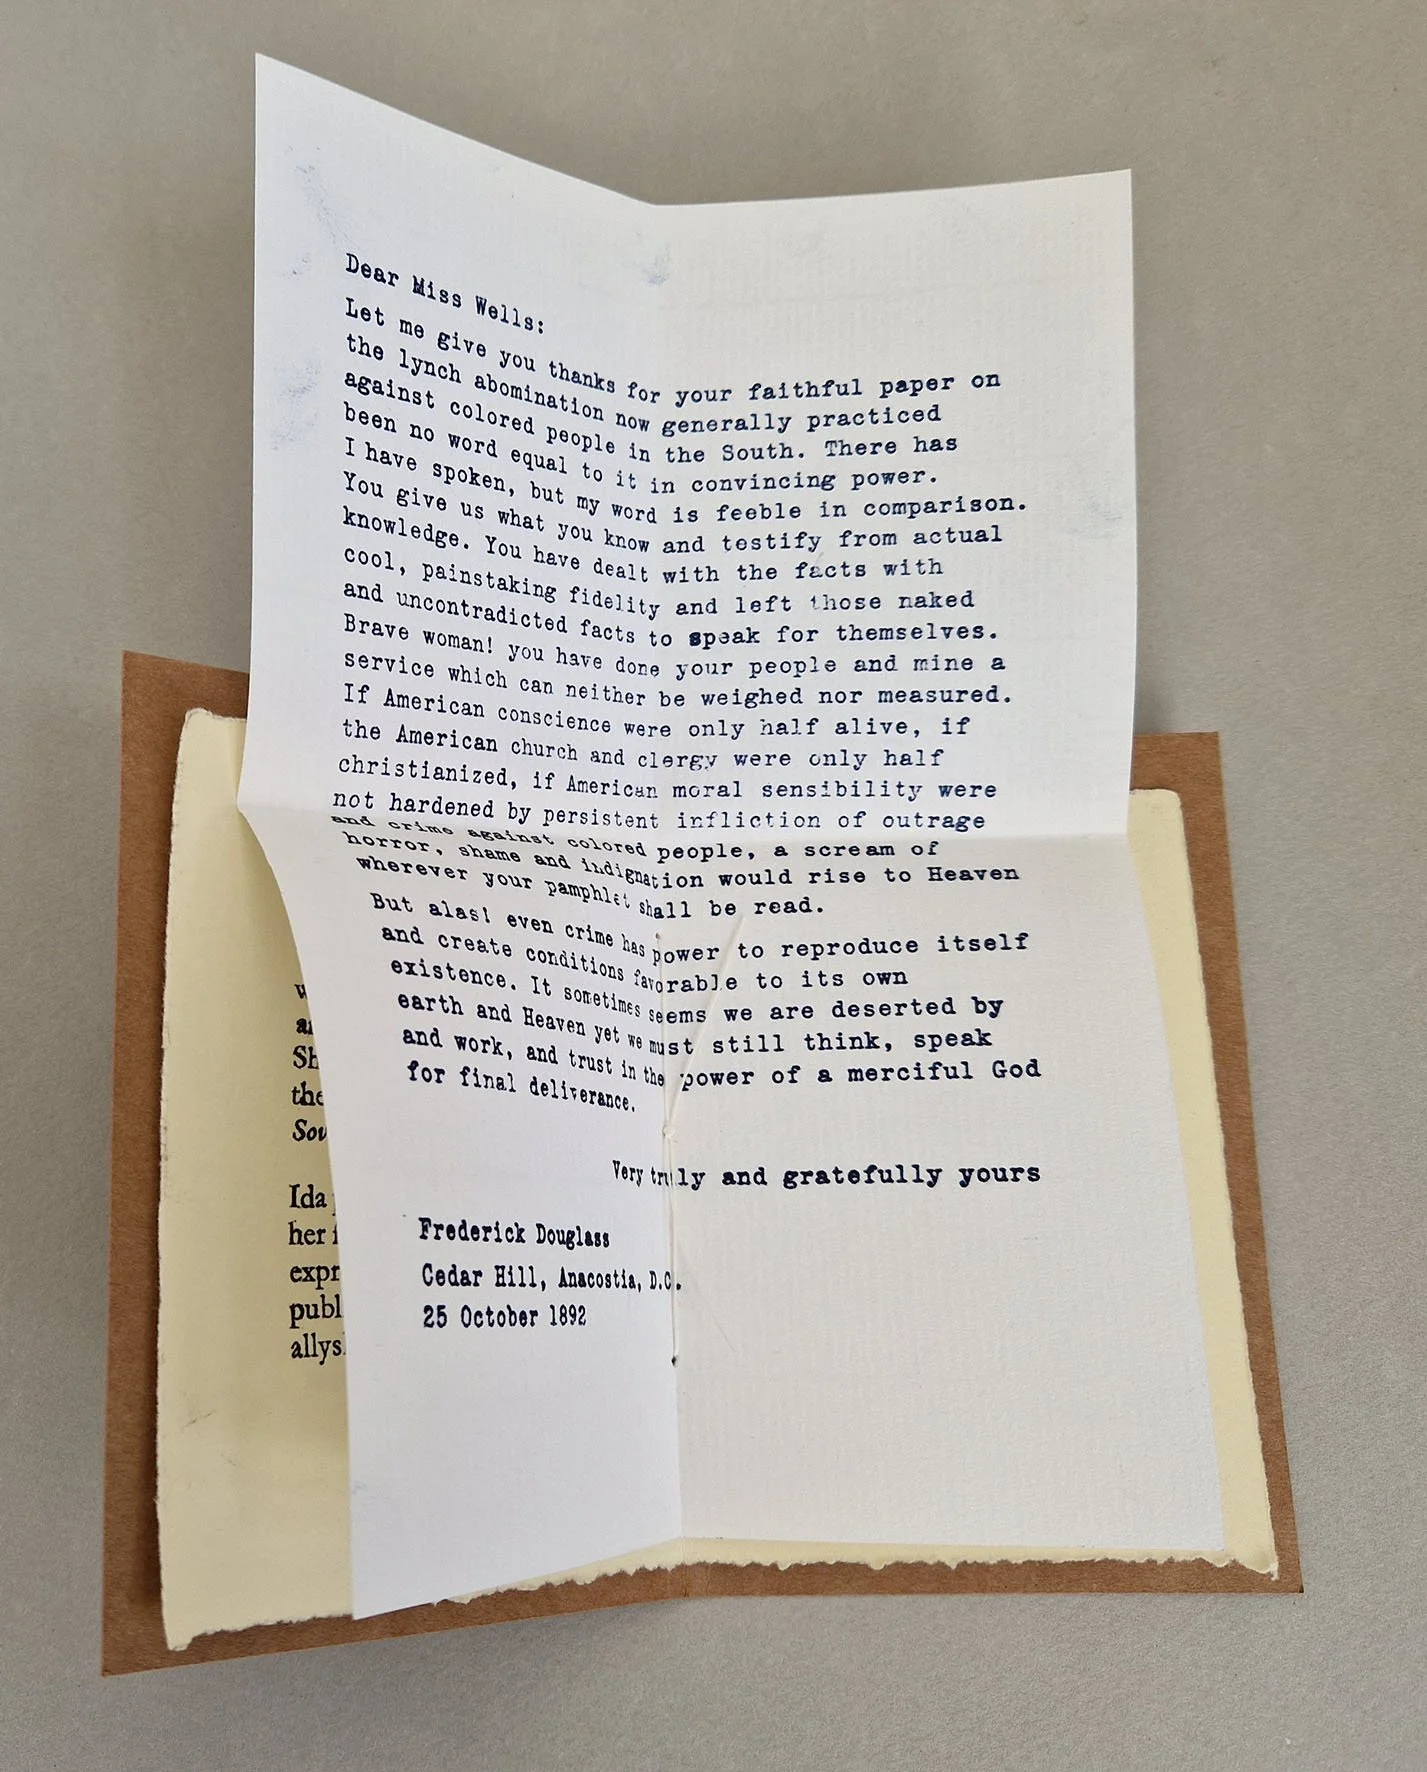 Dear Miss Wells:
Let me give you thanks for your faithful paper on
the lynch abomination now generally practiced
against colored people in the South. There has
been no word equal to it in convincing power.
I have spoken, but my word is feeble in comparison.
You give us what you know and testify from actual
knowledge. You have dealt with the facts with
cool, painstaking fidelity and left those naked
and uncontradicted facts to speak for themselves.
Brave woman! you have done your people and mine a
service which can neither be weighed nor measured.
If American conscience were only half alive, if
the American church and clergy were only half
christianized, if American moral sensibility were
not hardened by persistent infliction of outrage
and crime against colored people, a scream of
horror, shame and indignation would rise to Heaven
wherever your pamphlet shall be read.
But alas! even crime has power to reproduce itself
and create conditions favorable to its own
existence. It sometimes seems we are deserted by
earth and Heaven yet we must still think, speak
and work, and trust in the power of a merciful God
for final deliverance.
Very truly and gratefully yours
Frederick Douglass
Cedar Hill, Anacostia, D.C.
25 October 1892
the
Ida
her
expr
publ
allys